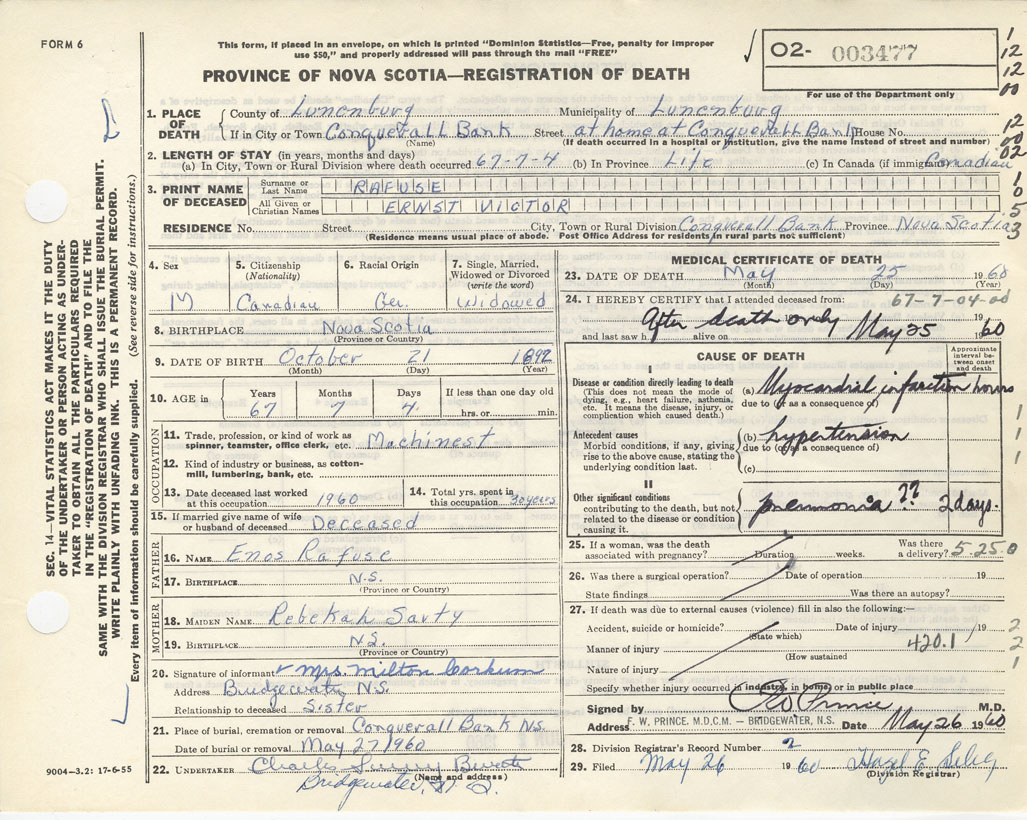 FORM 6
This form, if placed in an envelope, on which is printed "Dominion Statistics—Free, penalty for improper
use $50," and properly addressed will pass through the mail "FREE"
PROVINCE OF NOVA SCOTIA—REGISTRATION OF DEATH
02- 003477
For use of the Department only
1. PLACE OF DEATH County of Lunenburg Municipality of Lunenburg
If in City or Town Conquerall Bank Street at home at Conquerall Bank House No.
(Name) (If death occurred in a hospital or institution, give the name instead of street and number)
2. LENGTH OF STAY (in years, months and days)
(a) In City, Town or Rural Division where death occurred 67-7-4 (b) In Province Life (c) In Canada (if immigrant) Canadian
3. PRINT NAME OF DECEASED Surname or Last Name RAFUSE
All Given or Christian Names ERNST VICTOR
RESIDENCE No. Street City, Town or Rural Division Conquerall Bank Province Nova Scotia
(Residence means usual place of abode. Post Office Address for residents in rural parts not sufficient)
4. Sex M
5. Citizenship (Nationality) Canadian
6. Racial Origin Ger.
7. Single, Married, Widowed or Divorced (write the word) Widowed
8. BIRTHPLACE Nova Scotia
(Province or Country)
9. DATE OF BIRTH October 21 1892
(Month) (Day) (Year)
10. AGE in Years 67 Months 7 Days 4 If less than one day old hrs. or min.
OCCUPATION
11. Trade, profession, or kind of work as spinner, teamster, office clerk, etc. Machinest
12. Kind of industry or business, as cotton-mill, lumbering, bank, etc.
13. Date deceased last worked at this occupation 1960
14. Total yrs. spent in this occupation 30 years
15. If married give name of wife or husband of deceased Deceased
FATHER
16. NAME Enos Rafuse
17. BIRTHPLACE N.S.
(Province or Country)
MOTHER
18. MAIDEN NAME Rebekah Sarty
19. BIRTHPLACE N.S.
(Province or Country)
20. Signature of informant Mrs. Milton Corkum
Address Bridgewater, N.S.
Relationship to deceased Sister
21. Place of burial, cremation or removal Conquerall Bank N.S.
Date of burial or removal May 27, 1960
22. UNDERTAKER Charles
(Name and address)
Bridgewater, N.S.
MEDICAL CERTIFICATE OF DEATH
23. DATE OF DEATH May 25 1960
(Month) (Day) (Year)
24. I HEREBY CERTIFY that I attended deceased from: 67-7-04-00
After death only 19
and last saw h alive on May 25 1960
CAUSE OF DEATH
Approximate interval between onset and death
I
Disease or condition directly leading to death
(This does not mean the mode of dying, e.g., heart failure, asthenia, etc. It means the disease, injury, or complication which caused death.)
(a) Myocardial infarction hours
due to (or as a consequence of)
Antecedent causes
Morbid conditions, if any, giving rise to the above cause, stating the underlying condition last.
(b) hypertension
due to (or as a consequence of)
(c)
II
Other significant conditions
contributing to the death, but not related to the disease or condition causing it.
pneumonia ?? 2 days.
25. If a woman, was the death associated with pregnancy? Duration weeks. Was there a delivery? 5-25-0
26. Was there a surgical operation? Date of operation 19
State findings Was there an autopsy?
27. If death was due to external causes (violence) fill in also the following:—
Accident, suicide or homicide? Date of injury 19
(State which)
Manner of injury 420.1
(How sustained
Nature of injury
Specify whether injury occurred in industry, in home or in public place
Signed by Prince M.D.
Address F. W. PRINCE, M.D.C.M. — BRIDGEWATER, N.S. Date May 26 1960
28. Division Registrar's Record Number 2
29. Filed May 26 1960 Hazel E.
(Division Registrar)
SEC. 14—VITAL STATISTICS ACT MAKES IT THE DUTY
OF THE UNDERTAKER OR PERSON ACTING AS UNDER-
TAKER TO OBTAIN ALL THE PARTICULARS REQUIRED
IN THE "REGISTRATION OF DEATH" AND TO FILE THE
SAME WITH THE DIVISION REGISTRAR WHO SHALL ISSUE THE BURIAL PERMIT.
WRITE PLAINLY WITH UNFADING INK. THIS IS A PERMANENT RECORD.
Every item of information should be carefully supplied. (See reverse side for instructions.)
9004—3.2: 17-6-55
1
12
12
00
12
00
02
1
0
5
3
1
1
1
2
2
1